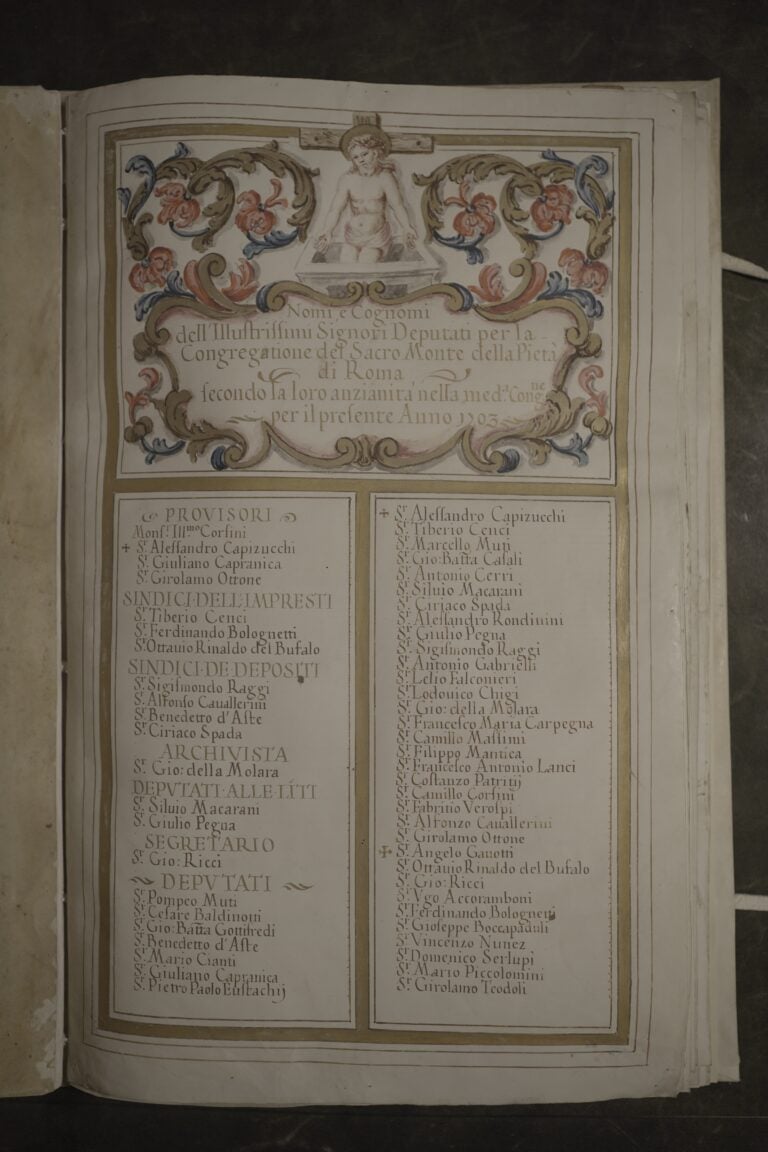 Nomi, e Cognomi
dell'Illustrissimi Signori Deputati per la
Congregatione del Sacro Monte della Pietà
di Roma
secondo la loro anzianità nella med.ª Cong.ne
per il presente Anno 1703
PROVISORI
Mons.r Ill.mo Corsini
+ S.r Alessandro Capizucchi
S.r Giuliano Capranica
S.r Girolamo Ottone
SINDICI·DELL·IMPRESTI
S.r Tiberio Cenci
S.r Ferdinando Bolognetti
S.r Ottauio Rinaldo del Bufalo
SINDICI·DE·DEPOSITI
S.r Sigismondo Raggi
S.r Alfonso Cauallerini
S.r Benedetto d'Aste
S.r Ciriaco Spada
ARCHIVISTA
S.r Gio: della Molara
DEPUTATI·ALLE·LITI
S.r Siluio Macarani
S.r Giulio Pegna
SEGRETARIO
S.r Gio: Ricci
DEPVTATI
S.r Pompeo Muti
S.r Cesare Baldinoti
S.r Gio: Batta Gottifredi
S.r Benedetto d'Aste
S.r Mario Cianti
S.r Giuliano Capranica
S.r Pietro Paolo Eustachij
+ S.r Alessandro Capizucchi
S.r Tiberio Cenci
S.r Marcello Muti
S.r Gio: Batta Casali
S.r Antonio Cerri
S.r Siluio Macarani
S.r Ciriaco Spada
S.r Alessandro Rondinini
S.r Giulio Pegna
S.r Sigismondo Raggi
S.r Antonio Gabrielli
S.r Lelio Falconieri
S.r Lodouico Chigi
S.r Gio: della Molara
S.r Francesco Maria Carpegna
S.r Camillo Massimi
S.r Filippo Mantica
S.r Francesco Antonio Lanci
S.r Costanzo Patritij
S.r Camillo Corsini
S.r Fabritio Verospi
S.r Alfonzo Cauallerini
S.r Girolamo Ottone
+ S.r Angelo Gauotti
S.r Ottauio Rinaldo del Bufalo
S.r Gio: Ricci
S.r Vgo Accoramboni
S.r Ferdinando Bolognetti
S.r Gioseppe Boccapaduli
S.r Vincenzo Nunez
S.r Domenico Serlupi
S.r Mario Piccolomini
S.r Girolamo Teodoli